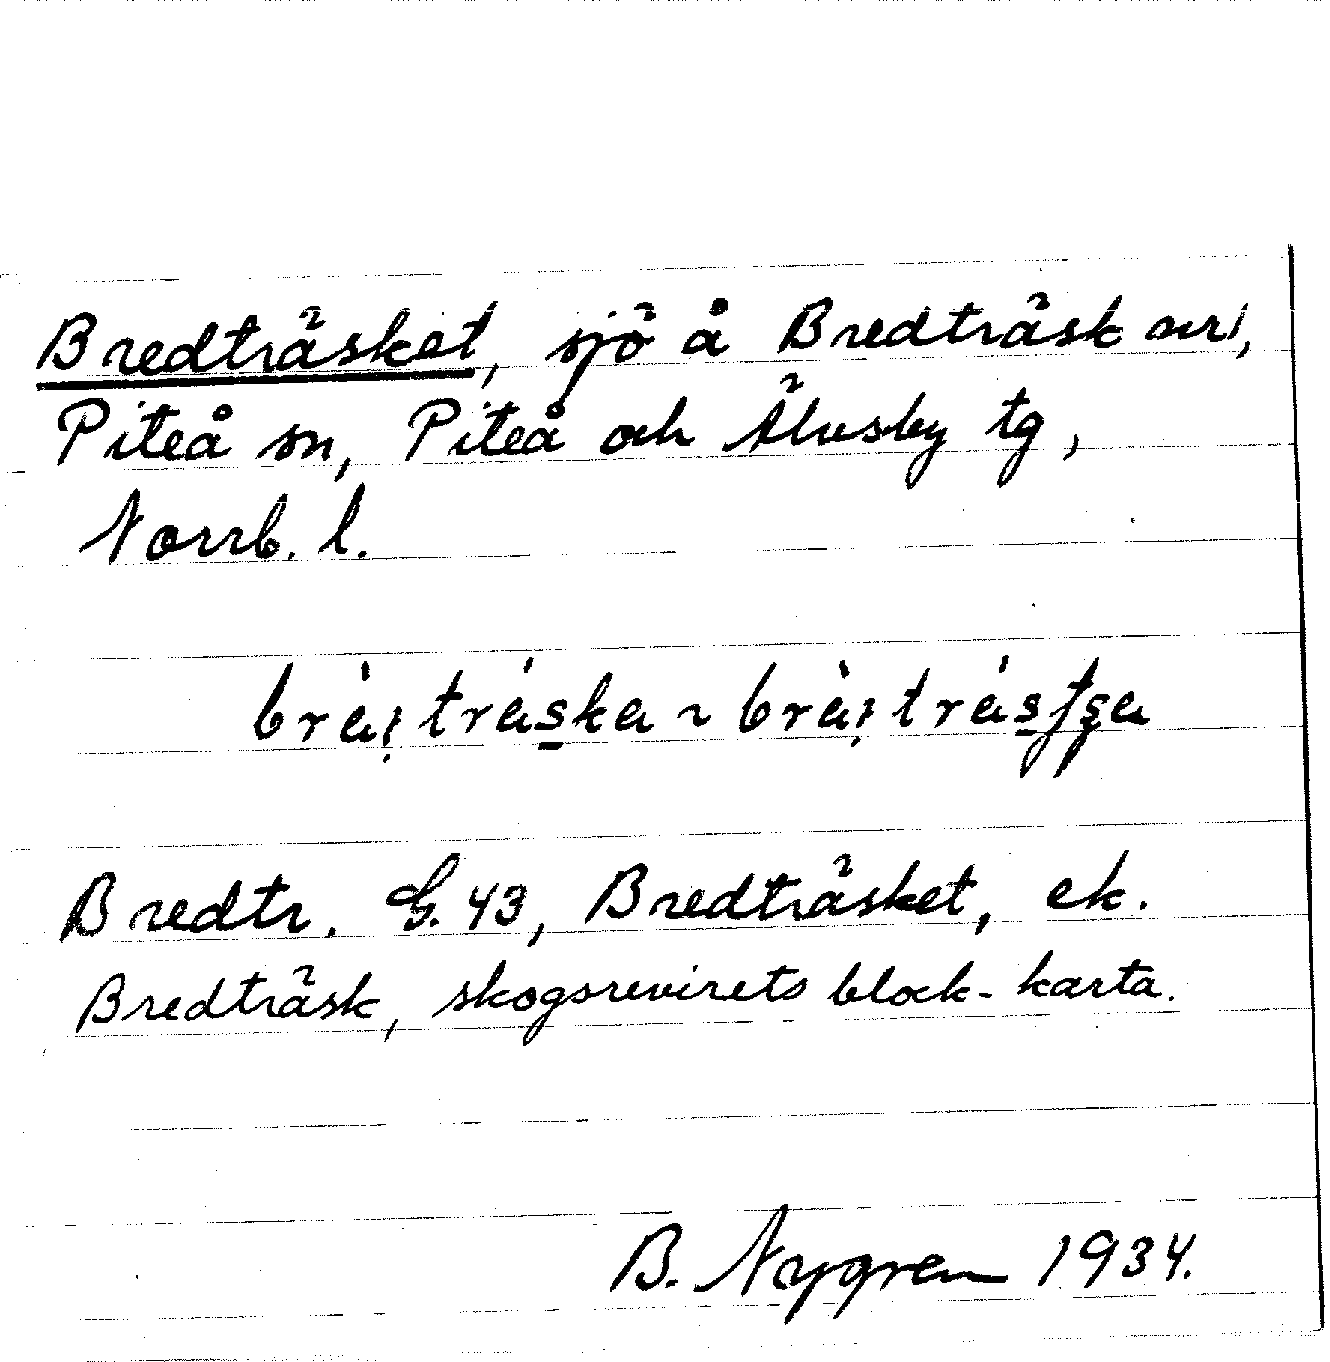 Bredträsket, sjö å Bredträsk
Piteå sn, Piteå och Älvsby tg,
Norrb. l.
Bredtr. G. 43, Bredträsket, ek.
Bredträsk, skogsrevirets block-karta.
B. Nygren 1934.